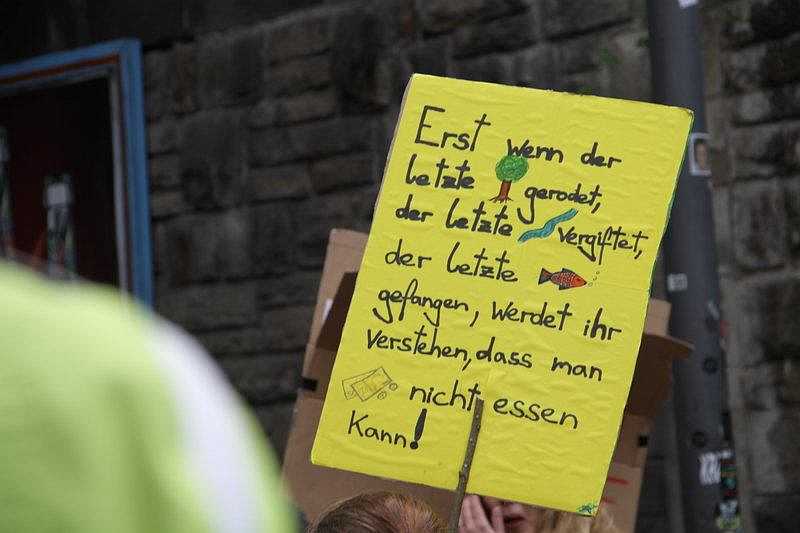 Erst wenn der
letzte gerodet,
der letzte vergiftet,
der letzte
gefangen, werdet ihr
verstehen, dass man
nicht essen
Kann!